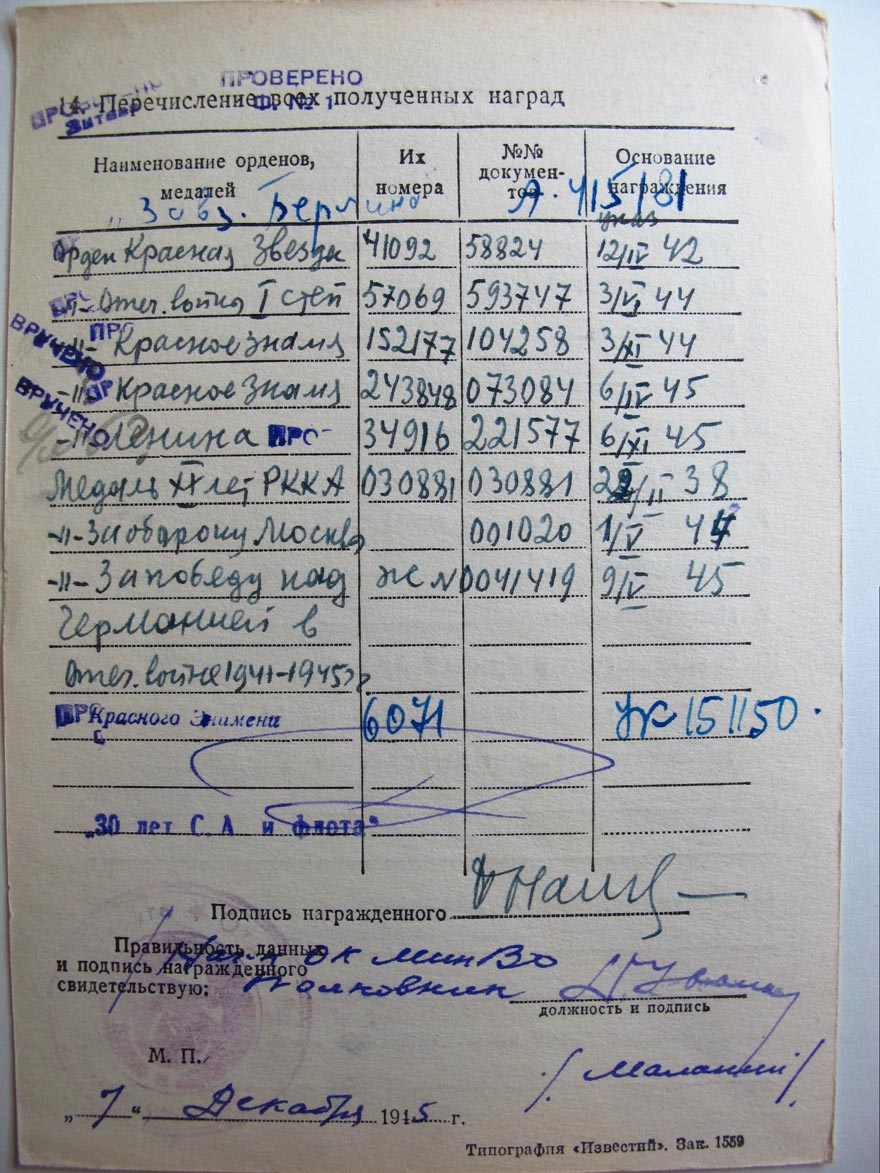 ПРОВЕРЕНО
Ф. № 1
14. Перечисление всех полученных наград
Наименование орденов, медалей Их номера №№ документов Основание награждения
„Завз. Берлина" А. 415181 указ
Орден Красная Звезда 41092 58824 12/IV 42
-"- Отеч. война I степ 57069 593747 3/VI 44
-"- Красное Знамя 152177 104258 3/XI 44
ВРУЧЕНО
-"- Красное Знамя 243848 073084 6/IV 45
ВРУЧЕНО
-"- Ленина ПРО 34916 221577 6/XI 45
Медаль XX лет РККА 030881 030881 22/II 38
-"- За оборону Москвы 001020 1/V 44
-"- За победу над Ж № 0041419 9/IV 45
Германией в
Отеч. войне 1941-1945г
Красного Знамени 6071 УК 151150.
„30 лет С. А и флота"
Подпись награжденного
Правильность данных
и подпись награжденного
свидетельствую:
ОК МинВО
Полковник
должность и подпись
М. П.
/Маланин/
„7" Декабря 1945 г.
Типография «Известий». Зак. 1559